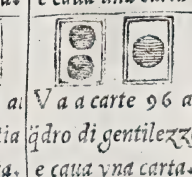 e caua una carta
al Va a carte 96 a
tia q̃dro di gentilezz
a, e caua vna carta.